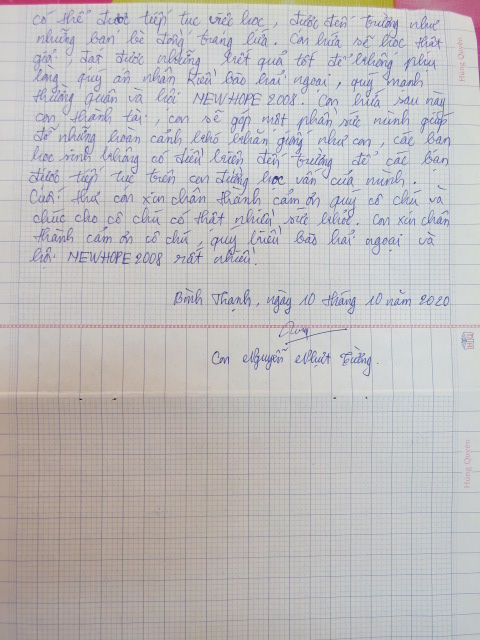 có thể được tiếp tục việc học, được đến trường như
những bạn bè đồng trang lứa. Con hứa sẽ học thật
giỏi, đạt được những kết quả tốt để không phụ
lòng quý ân nhân kiều bào hải ngoại, quý mạnh
thường quân và hội NEWHOPE 2008. Con hứa sau này
con thành tài, con sẽ góp một phần sức mình giúp
đỡ những hoàn cảnh khó khăn giống như con, các bạn
học sinh không có điều kiện đến trường để các bạn
được tiếp tục trên con đường học vấn của mình.
Cuối thư con xin chân thành cảm ơn quý cô chú và
chúc cho cô chú có thật nhiều sức khỏe. Con xin chân
thành cảm ơn cô chú, quý kiều bào hải ngoại và
hội NEWHOPE 2008 rất nhiều.
Bình Thạnh, ngày 10 tháng 10 năm 2020
Con Nguyễn Nhựt Trường.
Hùng Quyên
Hùng Quyên